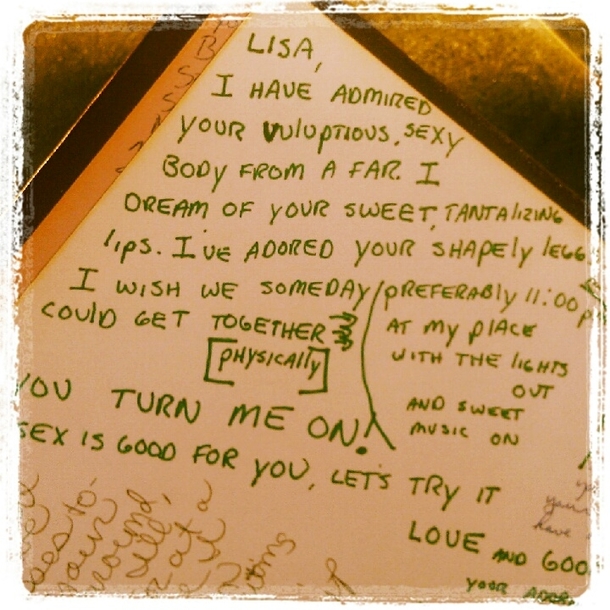 LISA,
I HAVE ADMIRED
YOUR VULUPTIOUS, SEXY
BODY FROM A FAR. I
DREAM OF YOUR SWEET, TANTALIZING
LIPS. I'VE ADORED YOUR SHAPELY LEGS.
I WISH WE SOMEDAY
COULD GET TOGETHER
[PHYSICALLY]
PREFERABLY 11:00
AT MY PLACE
WITH THE LIGHTS
OUT
AND SWEET
MUSIC ON
YOU TURN ME ON!
SEX IS GOOD FOR YOU, LET'S TRY IT
LOVE AND GOO
YOUR
have